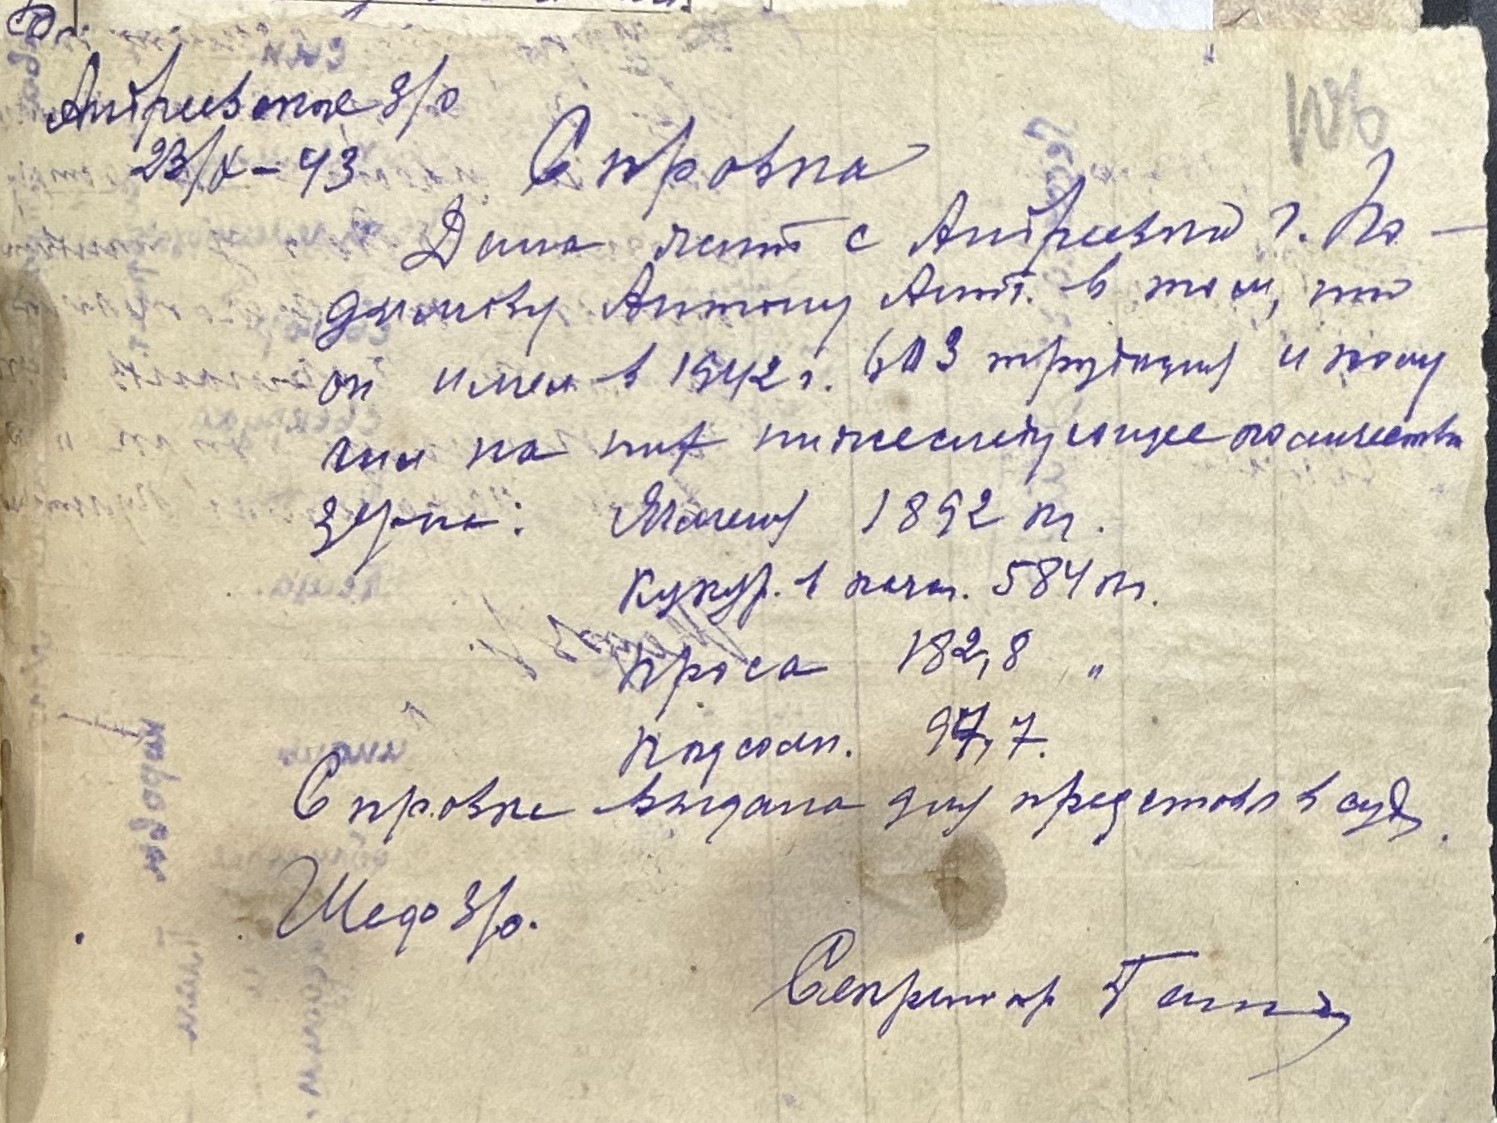 Андреевское з/о
23/X-43
Справка
Дана жит с Андреевки г. Ко-
думову Антону Ант. в том, что
он имел в 1942 г. 603 трудодня и полу
чил на них нижеследующее количество
зерна: Ячменя 1892 кг.
Кукур. в поч. 584 кг.
Проса 182,8 "
Подсолн. 97,7.
Справка выдана для представл в суд.
з/о.
Секретарь